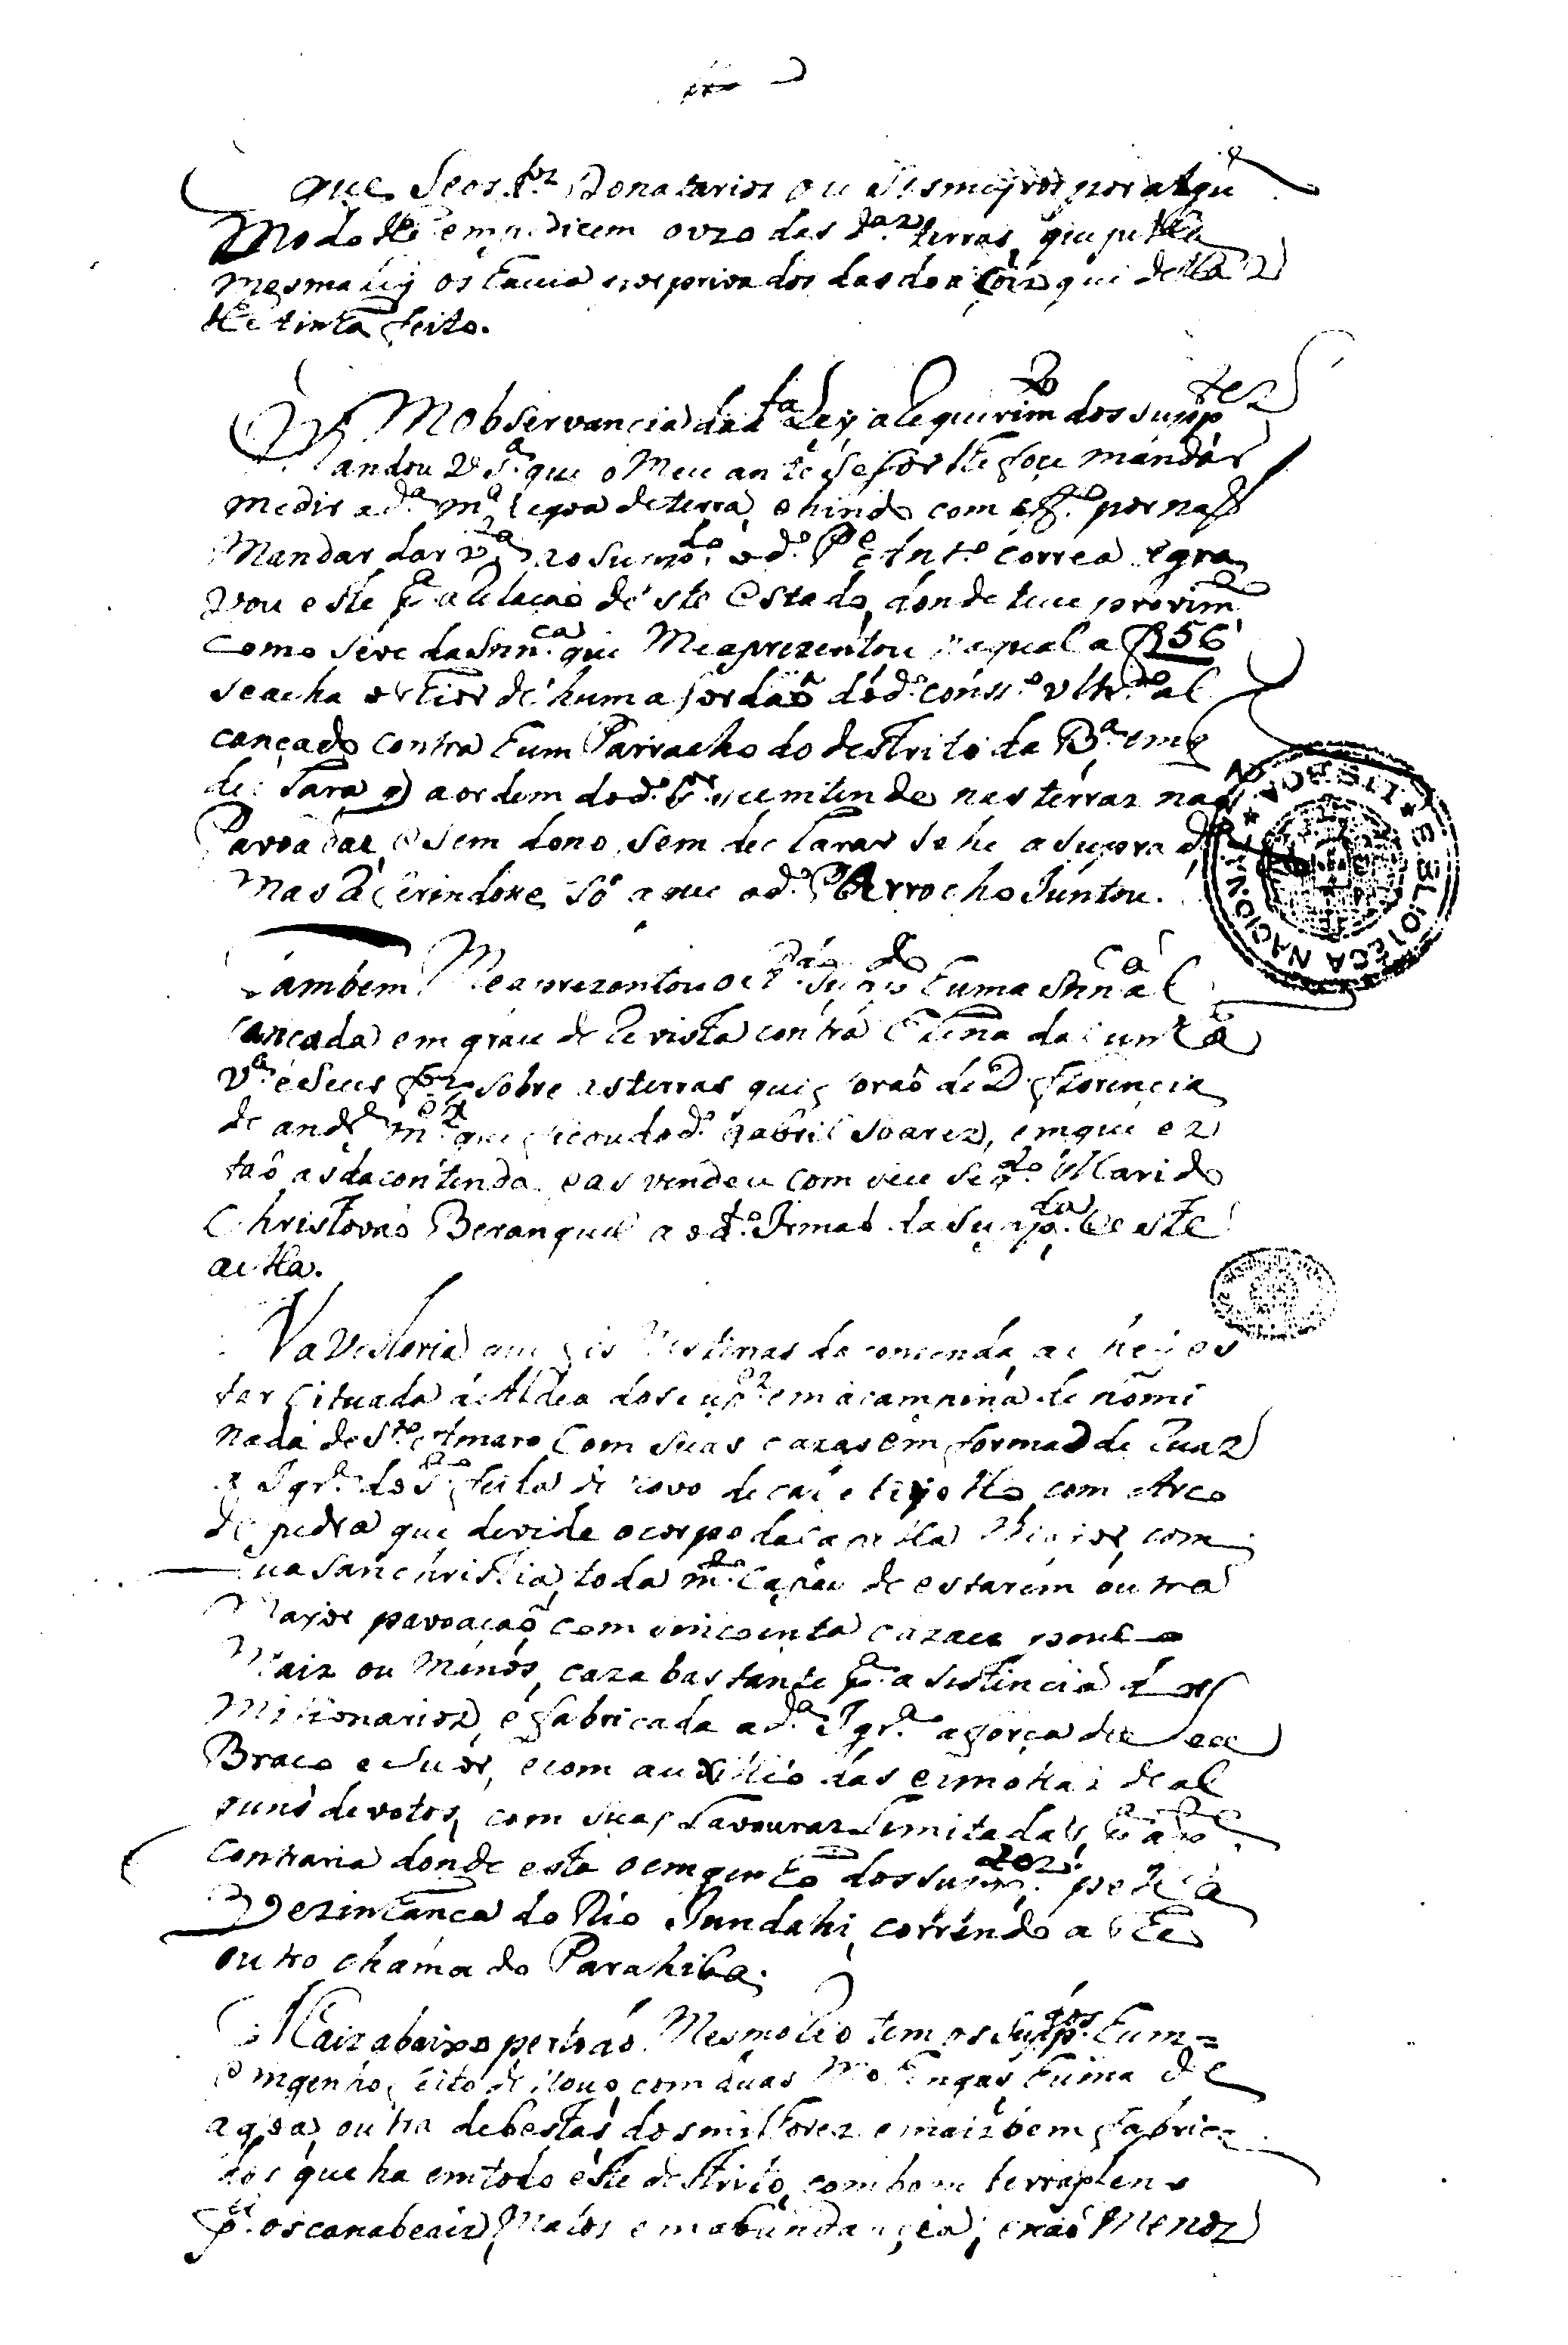 que Seos d.os Donatarios ou Sismeyros por algũ
Modo lhe empedicem o uzo das d.as terras, que pella
mesma ley os havia por privados das doaçois que dellas
lhe tinha feito.
Em observancia da d.ta Ley a Requerim.to dos supp.tes
Mandou V. S.a que o Meu antecesor lhe foce mandar
medir a d.a m.a legoa de terra, e hindo com eff.o por naõ
Mandar dar v.ta ao sup.do o d.o P.e Ant.o Correa agra
vou este p.a a Relaçaõ deste Estado, donde teve provim.to
como se ve da Snn.ca que Me aprezentou na qual a f 56
se acha o theor de huma ordaõ do d.o cons.o Ultr.o al
cançado contra hum Parracho do destrito da B.a em q
declara q a ordem do d.o Sr. se emtende nas terras naõ
Pavoadas, e sem dono, sem declarar se he a supra d.a
mas referindoce só a que o d.o Parrocho Juntou.
Tambem Me aprezentou o R.do P.e Sup.do huma Snn.ca al
cançada em grau de Revista contra Elena da Cunha
V.a e seus f.os sobre as terras que foraõ de D. Florencia
de andr.e m.er que ficou do d.o gabriel Soares, em que es
taõ as da contenda e as vendeu com seu seg.do Marido
Christovaõ Beranquel a o d.o Irmaõ da sup.da e este
a ella.
Na Vestoria que fis Nas terras da contenda achey es
tar cituada a Aldea dos sup.es em a campina denomi
nada de S.to Amaro Com suas cazas em forma de Ruas
a Igr.a do S.to feita de novo de cal e tijollo com Arco
de pedra que devide o corpo da Capella Maior, com
sua sancristia, toda m.to Capax de estarem outra
Mayor pavoaçaõ com sincoenta cazaes pouco
Mais ou Menos, caza bastante p.a asistencia dos
Missionarios, e fabricada a d.a Igr.a a força de seu
Braço e suor, e com auxilio das esmollas de al
guns devotos, com suas Lavouras Limitadas, p.a a p.te
contraria donde esta o emgenho dos sup.dos pella
Vezinhança do Rio Jundahi, correndo athe
outro chamado Parahiba.
Mais abaixo perto do Mesmo Rio tem os sup.dos hum=
emgenho, feito de novo, com duas Mohengas huma de
agoa, outra de bestas dos milhores e mais bem fabrica
dos que ha em todo este destrito, com bom terrapleno
p.a os canabeais, Matos em abundancia, e naõ menos